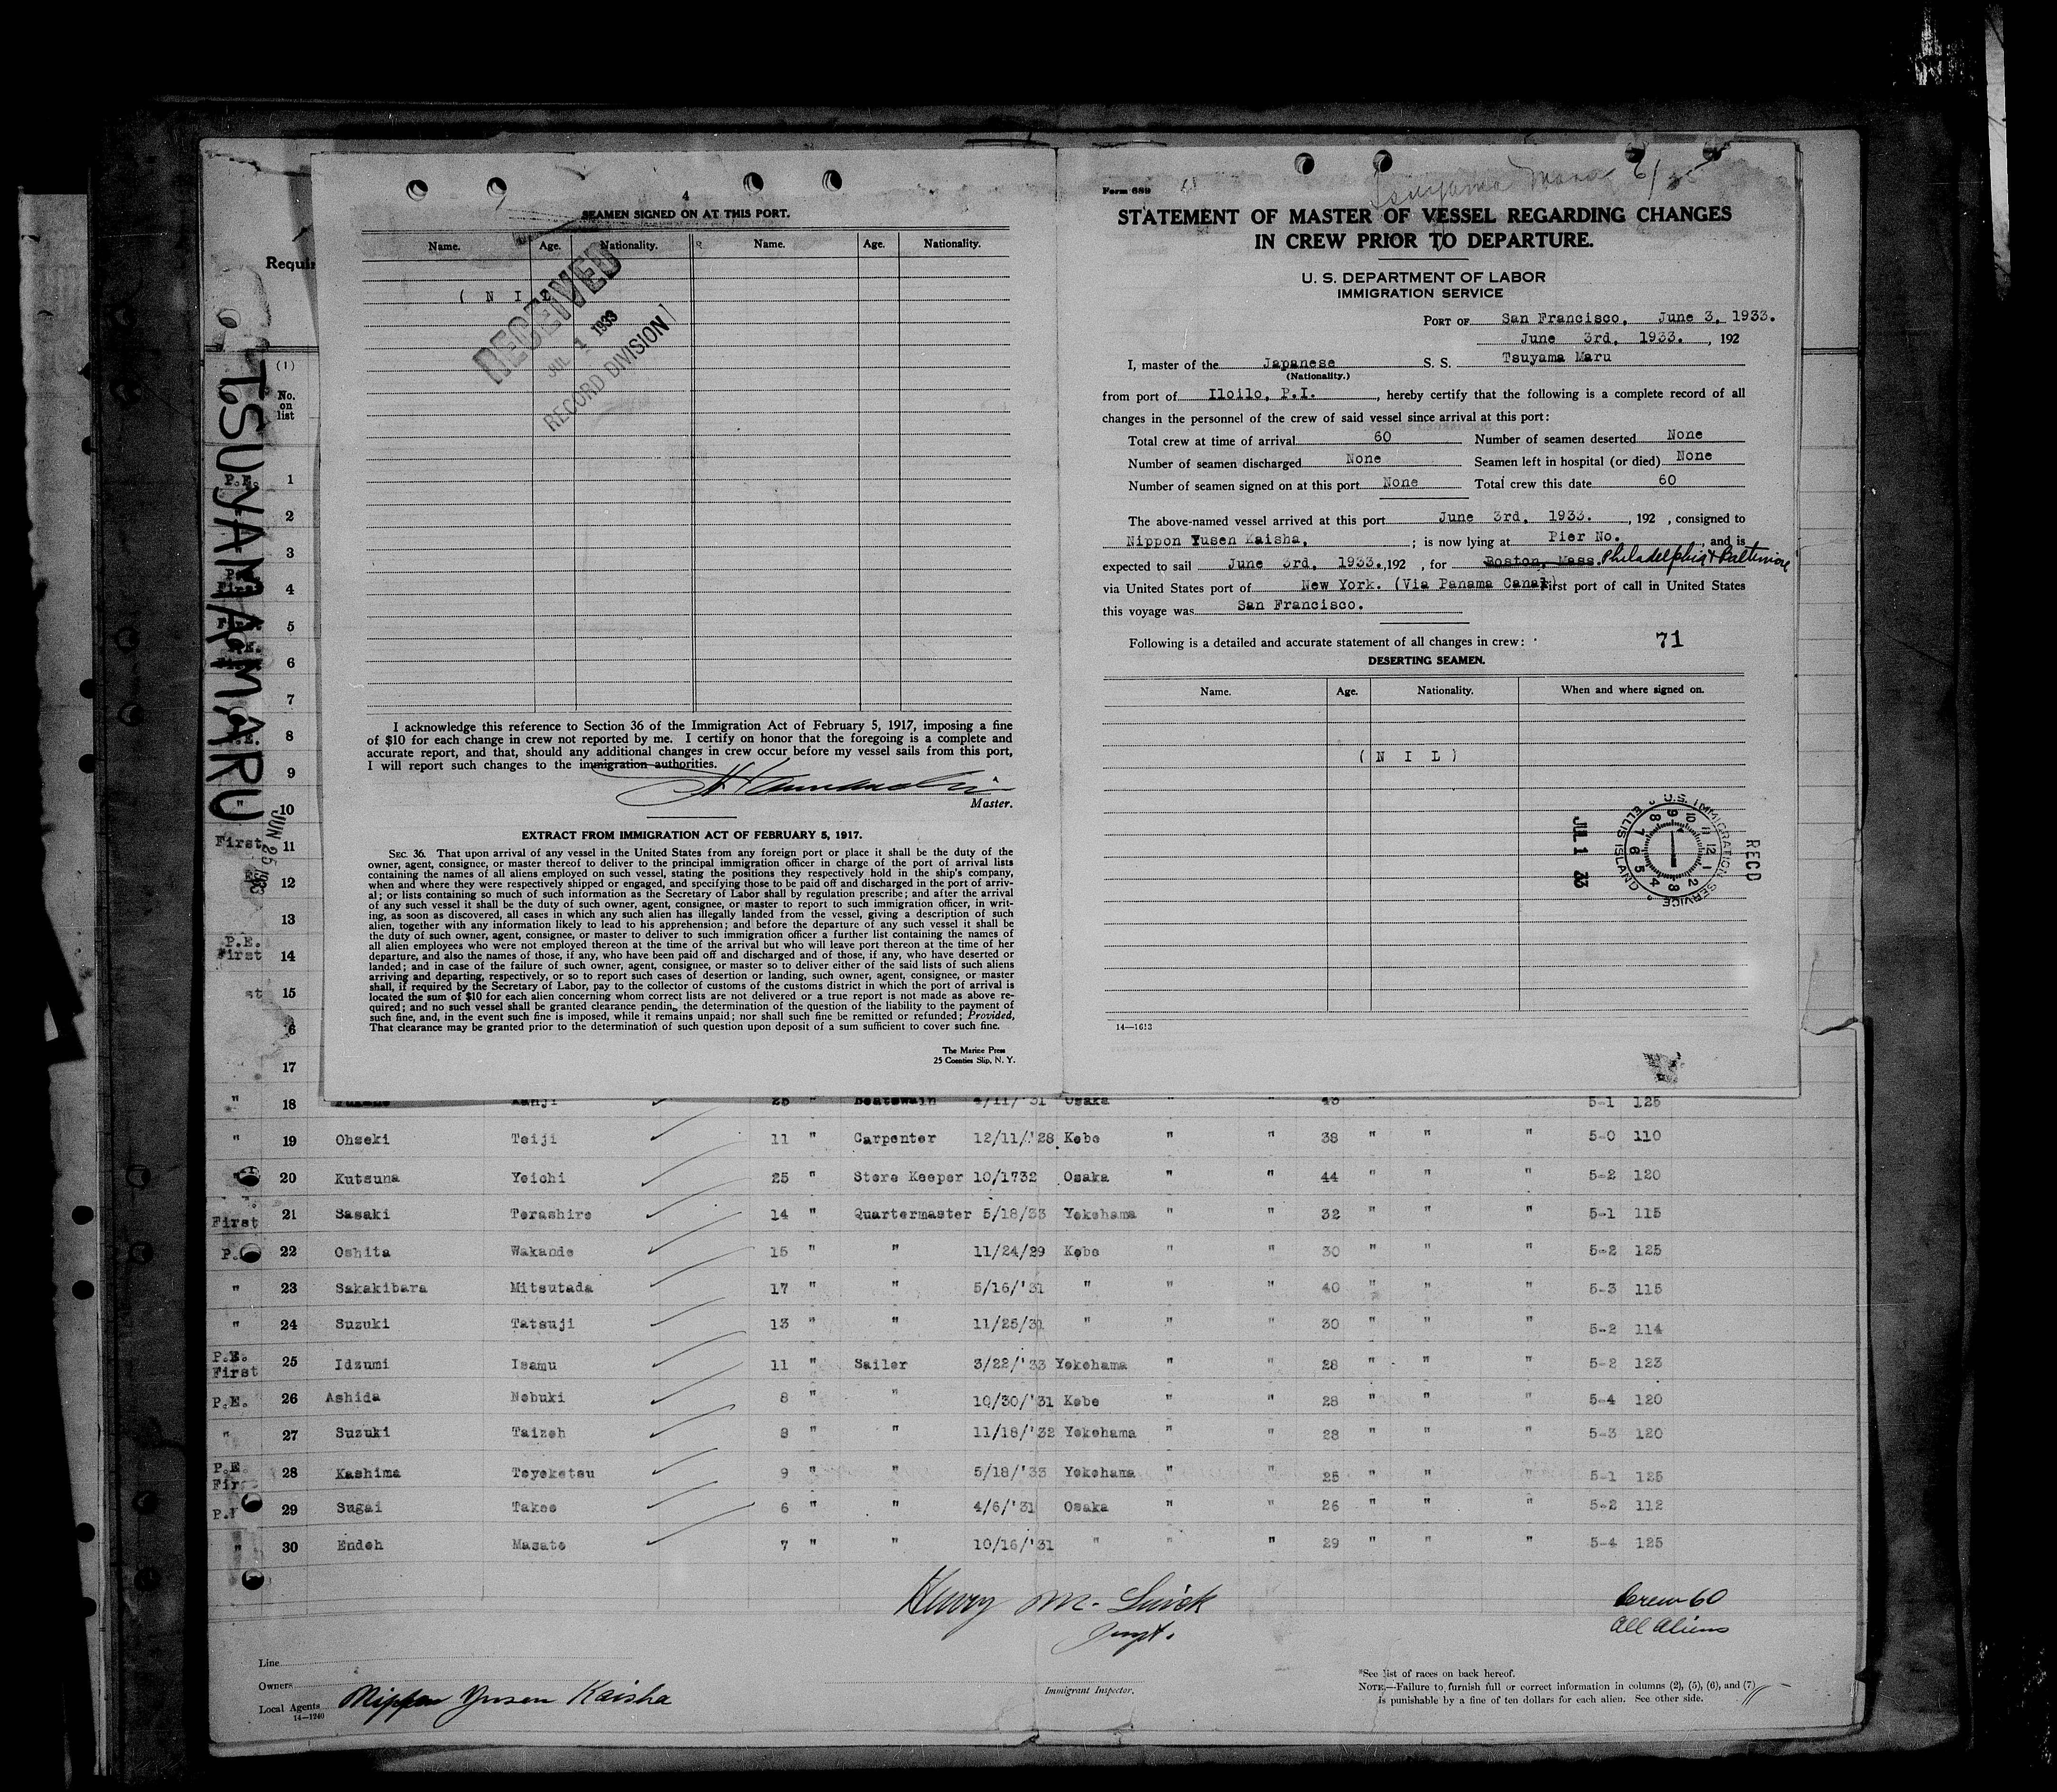 4
SEAMEN SIGNED ON AT THIS PORT.
Name. Age. Nationality. Name. Age. Nationality.
( N I L
RECEIVED
JUL 1 1933
RECORD DIVISION
I acknowledge this reference to Section 36 of the Immigration Act of February 5, 1917, imposing a fine
of $10 for each change in crew not reported by me. I certify on honor that the foregoing is a complete and
accurate report, and that, should any additional changes in crew occur before my vessel sails from this port,
I will report such changes to the immigration authorities.
Master.
EXTRACT FROM IMMIGRATION ACT OF FEBRUARY 5, 1917.
SEC. 36. That upon arrival of any vessel in the United States from any foreign port or place it shall be the duty of the
owner, agent, consignee, or master thereof to deliver to the principal immigration officer in charge of the port of arrival lists
containing the names of all aliens employed on such vessel, stating the positions they respectively hold in the ship's company,
when and where they were respectively shipped or engaged, and specifying those to be paid off and discharged in the port of arriv-
al; or lists containing so much of such information as the Secretary of Labor shall by regulation prescribe; and after the arrival
of any such vessel it shall be the duty of such owner, agent, consignee, or master to report to such immigration officer, in writ-
ing, as soon as discovered, all cases in which any such alien has illegally landed from the vessel, giving a description of such
alien, together with any information likely to lead to his apprehension; and before the departure of any such vessel it shall be
the duty of such owner, agent, consignee, or master to deliver to such immigration officer a further list containing the names of
all alien employees who were not employed thereon at the time of the arrival but who will leave port thereon at the time of her
departure, and also the names of those, if any, who have been paid off and discharged and of those, if any, who have deserted or
landed; and in case of the failure of such owner, agent, consignee, or master so to deliver either of the said lists of such aliens
arriving and departing, respectively, or so to report such cases of desertion or landing, such owner, agent, consignee, or master
shall, if required by the Secretary of Labor, pay to the collector of customs of the customs district in which the port of arrival is
located the sum of $10 for each alien concerning whom correct lists are not delivered or a true report is not made as above re-
quired; and no such vessel shall be granted clearance pending the determination of the question of the liability to the payment of
such fine, and, in the event such fine is imposed, while it remains unpaid; nor shall such fine be remitted or refunded; Provided,
That clearance may be granted prior to the determination of such question upon deposit of a sum sufficient to cover such fine.
The Marine Press
25 Coenties Slip, N. Y.
Form 689
Tsuyama Maru 6/
STATEMENT OF MASTER OF VESSEL REGARDING CHANGES
IN CREW PRIOR TO DEPARTURE.
U. S. DEPARTMENT OF LABOR
IMMIGRATION SERVICE
PORT OF San Francisco, June 3, 1933.
June 3rd, 1933. , 192
I, master of the Japanese S. S. Tsuyama Maru
(Nationality.)
from port of Iloilo, P.I. , hereby certify that the following is a complete record of all
changes in the personnel of the crew of said vessel since arrival at this port:
Total crew at time of arrival 60 Number of seamen deserted None
Number of seamen discharged None Seamen left in hospital (or died) None
Number of seamen signed on at this port None Total crew this date 60
The above-named vessel arrived at this port June 3rd, 1933. , 192 , consigned to
Nippon Yusen Kaisha, ; is now lying at Pier No. and is
expected to sail June 3rd, 1933. ,192 , for Boston, Mass. Philadelphia & Baltimore
via United States port of New York. (Via Panama Canal) First port of call in United States
this voyage was San Francisco.
Following is a detailed and accurate statement of all changes in crew: 71
DESERTING SEAMEN.
Name. Age. Nationality. When and where signed on.
( N I L )
REC'D
U.S. IMMIGRATION SERVICE ELLIS ISLAND
JUL 1 33
14—1613
TSUYAMA MARU
JUN 25 1933
Requir
(1)
No.
on
list
P.E. 1
2
3
4
5
6
7
8
9
" 10
First 11
12
13
P.E.
First 14
st 15
6
17
" 18 Kanji 25 " Boatswain 4/11/'31 Osaka " " 43 5-1 125
" 19 Ohseki Teiji 11 " Carpenter 12/11/'28 Kobe " " 38 " " " 5-0 110
20 Kutsuna Yoichi 25 " Store Keeper 10/1732 Osaka " " 44 " " " 5-2 120
First 21 Sasaki Terashiro 14 " Quartermaster 5/18/33 Yokohama " " 32 " " " 5-1 115
P. 22 Oshita Wakando 15 " " 11/24/29 Kobe " " 30 " " " 5-2 125
" 23 Sakakibara Mitsutada 17 " " 5/16/'31 " " " 40 " " " 5-3 115
" 24 Suzuki Tatsuji 13 " " 11/25/31 " " " 30 " " " 5-2 114
P.E.
First 25 Idzumi Isamu 11 " Sailor 3/22/'33 Yokohama " " 28 " " " 5-2 123
P.E. 26 Ashida Nobuki 8 " " 10/30/'31 Kobe " " 28 " " " 5-4 120
" 27 Suzuki Taizoh 8 " " 11/18/'32 Yokohama " " 28 " " " 5-3 120
P.E.
Fir 28 Kashima Toyoketsu 9 " " 5/18/'33 Yokohama " " 25 " " " 5-1 125
P. 29 Sugai Takeo 6 " " 4/6/'31 Osaka " " 26 " " " 5-2 112
" 30 Endoh Masato 7 " " 10/16/'31 " " " 29 " " " 5-4 125
Henry M.
Crew 60
All Aliens
Line
Owners
Local Agents Nippon Yusen Kaisha
14—1240
Immigrant Inspector.
*See list of races on back hereof.
NOTE.—Failure to furnish full or correct information in columns (2), (5), (6), and (7)
is punishable by a fine of ten dollars for each alien. See other side.